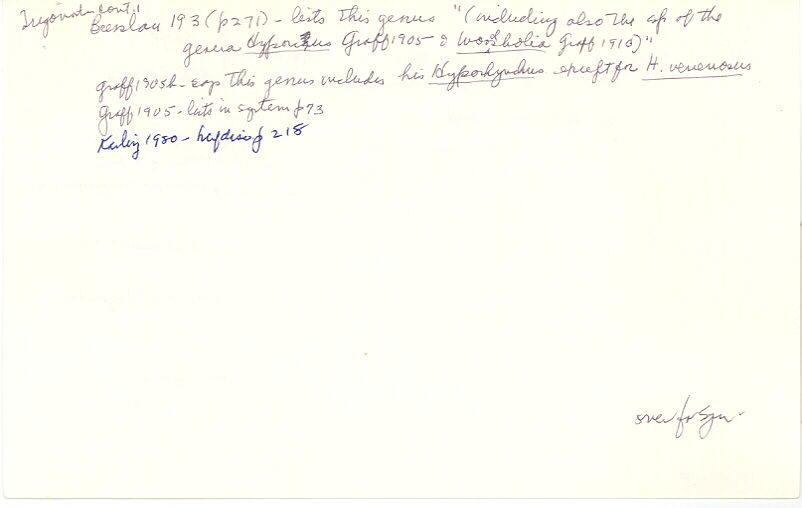 cont.'
Beeslau 193 (p271) - lists this genus "(including also the sp of the
genera Hyporcus Graff 1905 & Woodsholia Graff 1910)"
Graff 1905b - says this genus includes his Hyporhynchus except for H. venenosus
Graff 1905 - lists in system p 73
Karling 1980 - p 218
over for Syn.